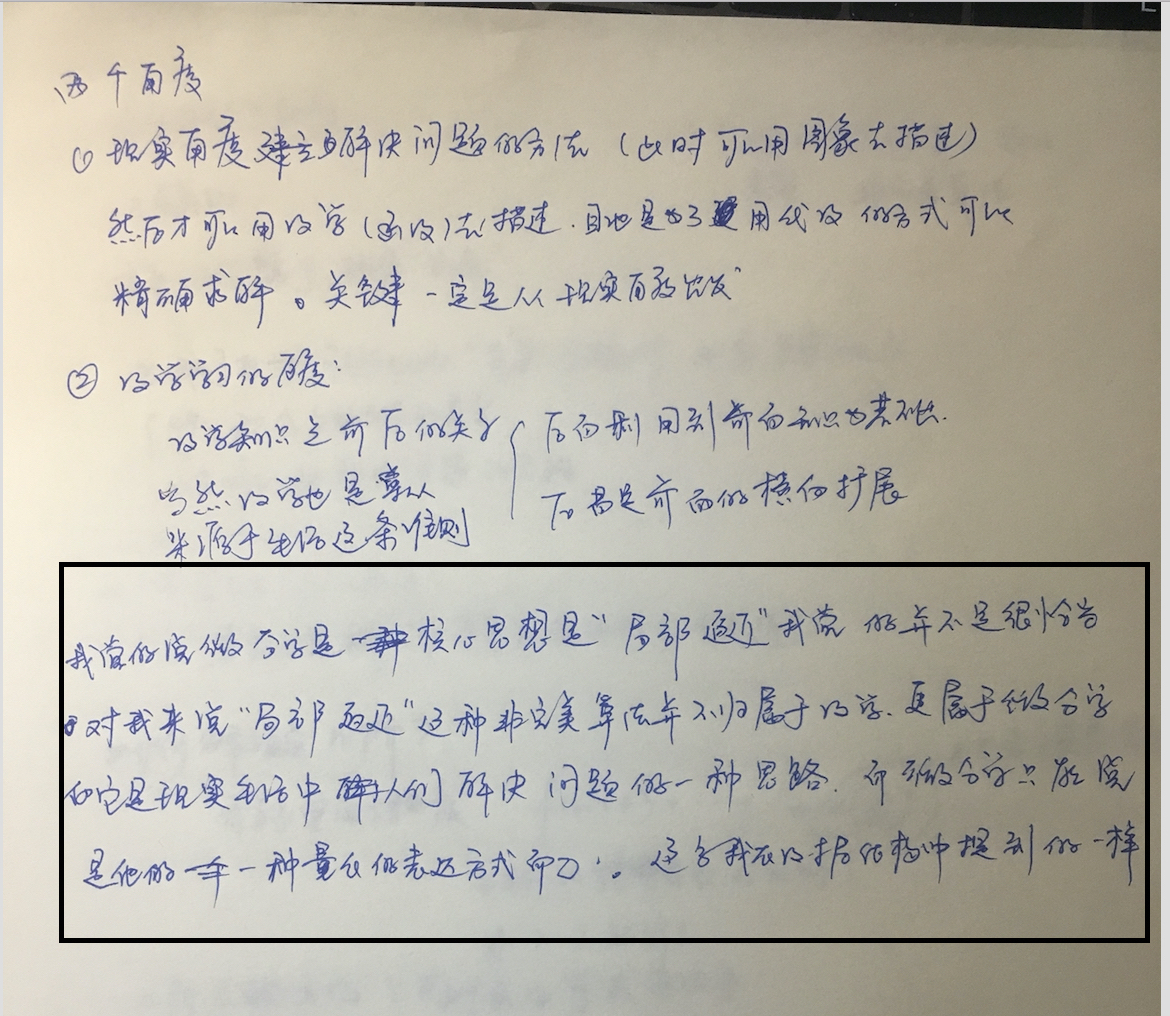 两个角度
① 现实角度建立解决问题的方法（此时可以用图象去描述）
然后才可以用数学（函数）去描述.目地是为了用代数的方式可以
精确求解。关键一定是从现实角度出发
② 数学学习的角度：
数学知识之前后的关系 后面利用到前面知识为基础.
当然数学也是
来源于生活这条准则
后者是前面的横向扩展
我说的说微分学是核心思想是“局部逼近”我说的并不是很恰当
对我来说“局部逼近”这种非完美算法并不归属于数学.更属于微分学
它是现实生活中人们解决问题的一种思路.而微分学只能说
是他的一种量化的表达方式而已。这与我在数据结构中提到的一样